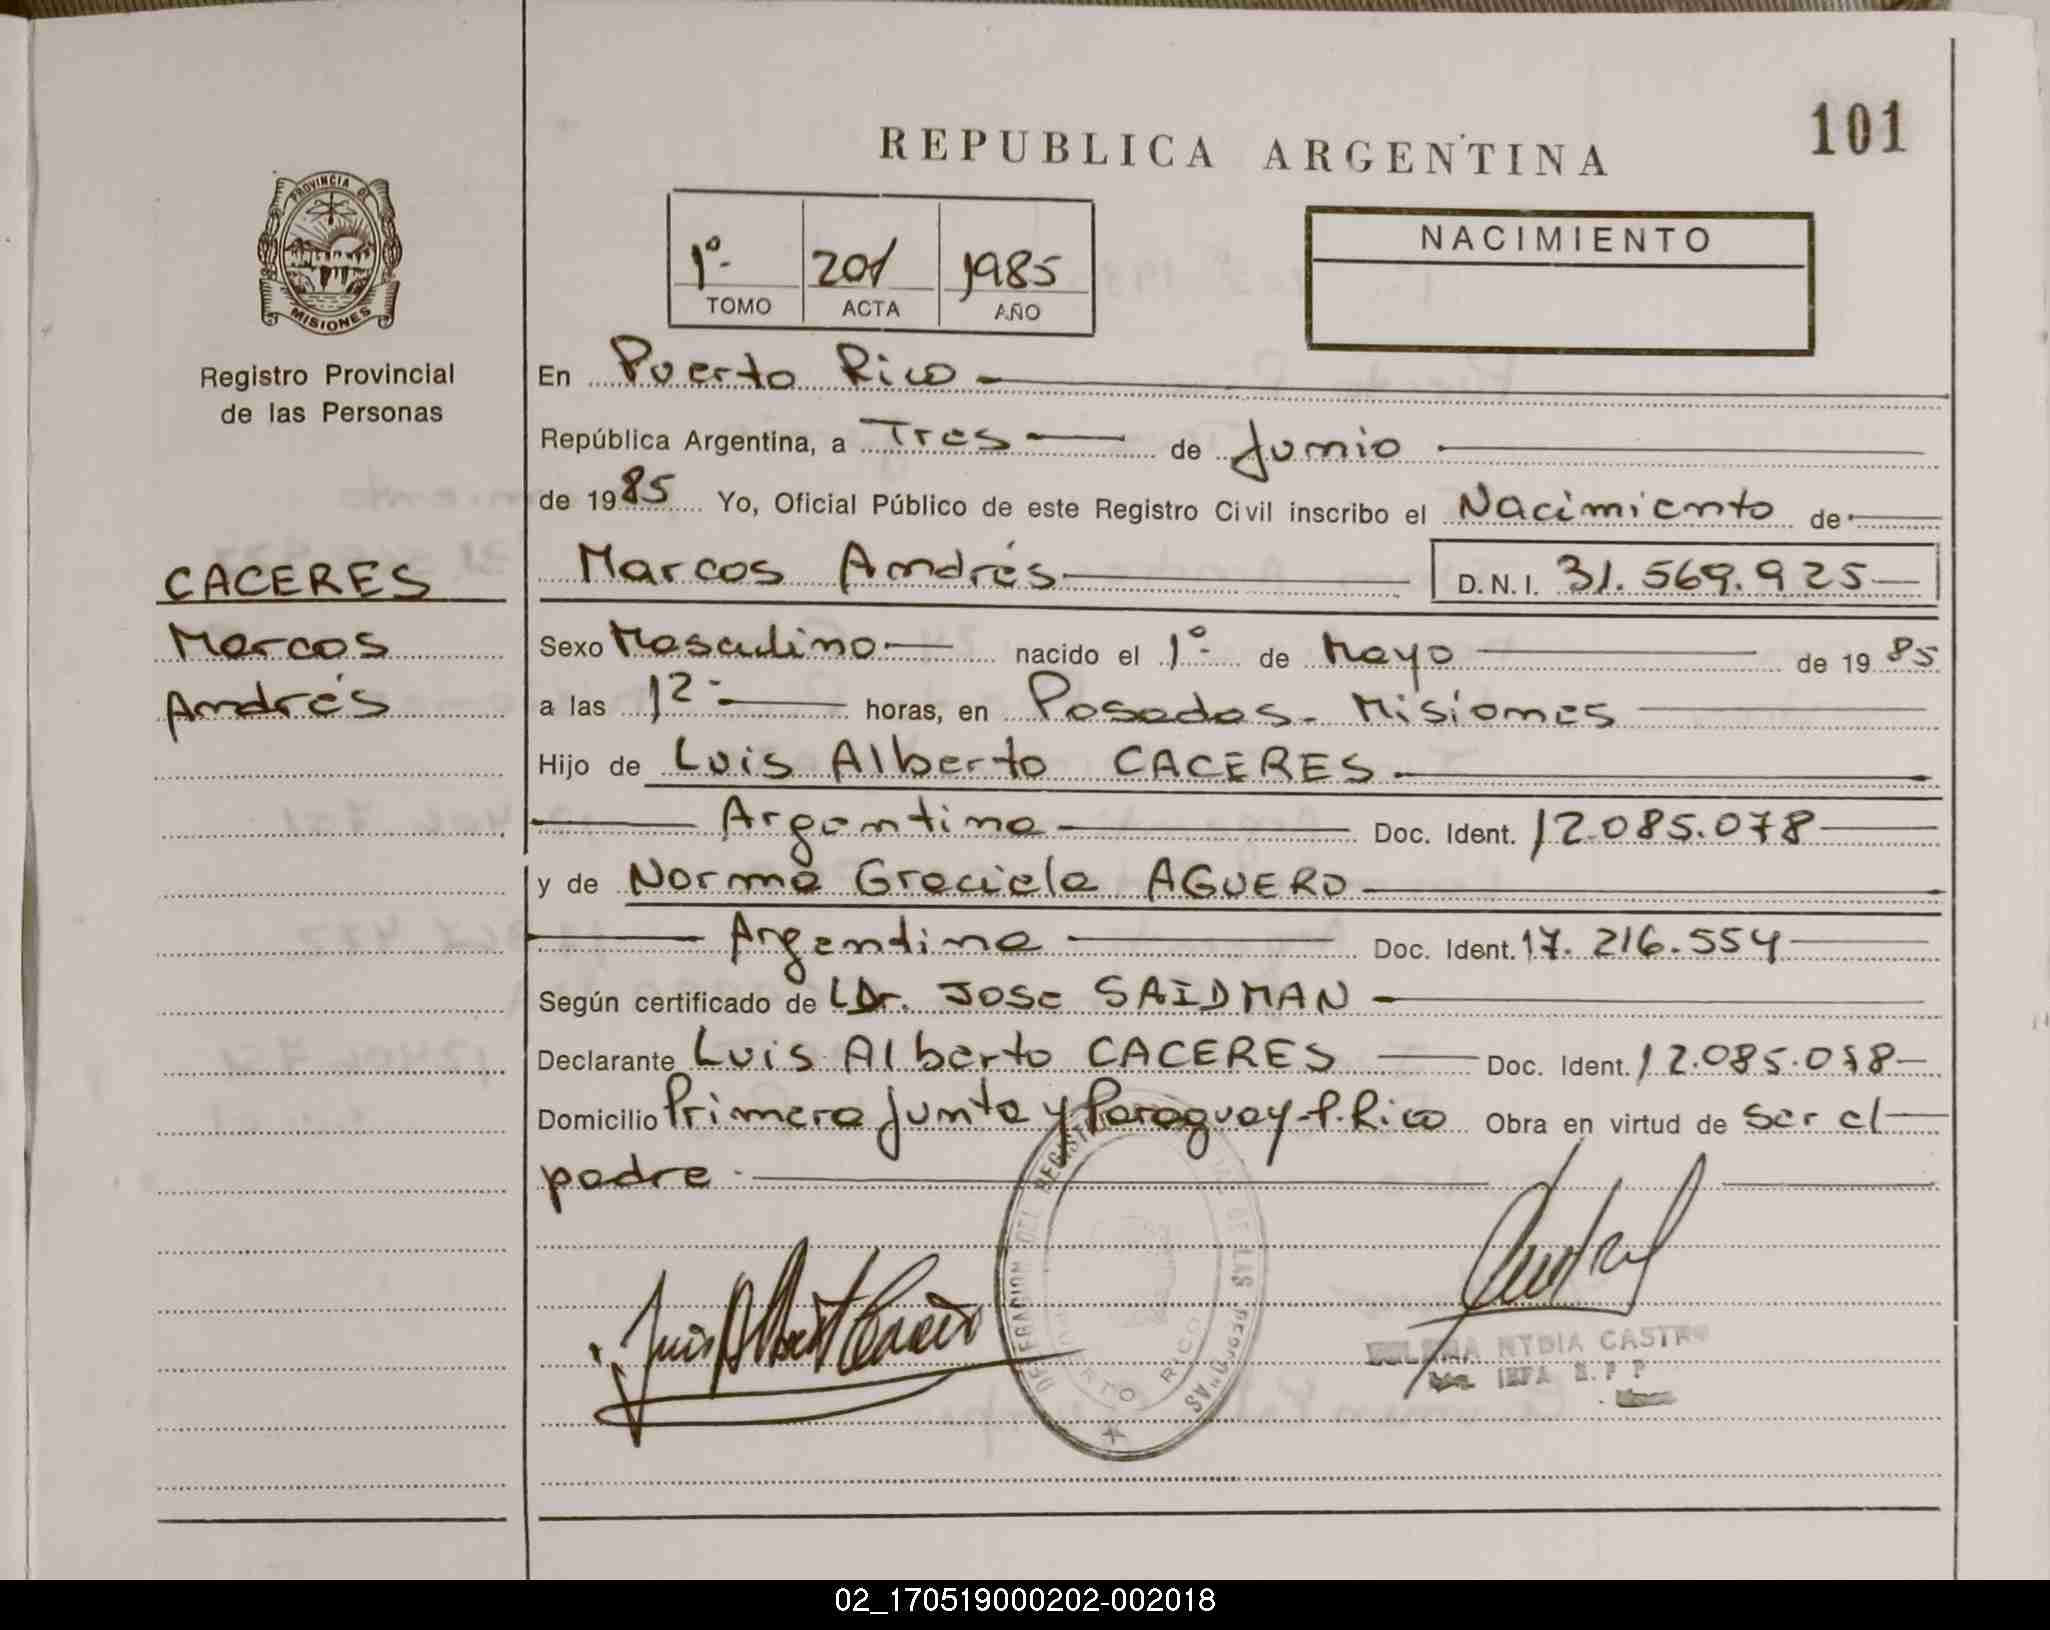 101
REPUBLICA ARGENTINA
PROVINCIA DE
MISIONES
Registro Provincial
de las Personas
1º- 201 1985
TOMO ACTA AÑO
NACIMIENTO
En Puerto Rico
República Argentina, a Tres de Junio
de 1985 Yo, Oficial Público de este Registro Civil inscribo el Nacimiento de
CACERES
Marcos
Andrés
Marcos Andrés D.N.I. 31.569.925
Sexo Masculino nacido el 1º- de Mayo de 1985
a las 12- horas, en Posadas- Misiones
Hijo de Luis Alberto CACERES
Argentino Doc. Ident. 12.085.078
y de Norma Graciela AGUERO
Argentina Doc. Ident. 17.216.554
Según certificado de Dr. Jose SAIDMAN
Declarante Luis Alberto CACERES Doc. Ident. 12.085.078
Domicilio Primera Junta y Paraguay-P.Rico Obra en virtud de ser el
padre
Luis Albert Caceres
DELEGACION DEL REGISTRO DE LAS PERSONAS
PUERTO RICO
NYDIA CASTRO
02_170519000202-002018